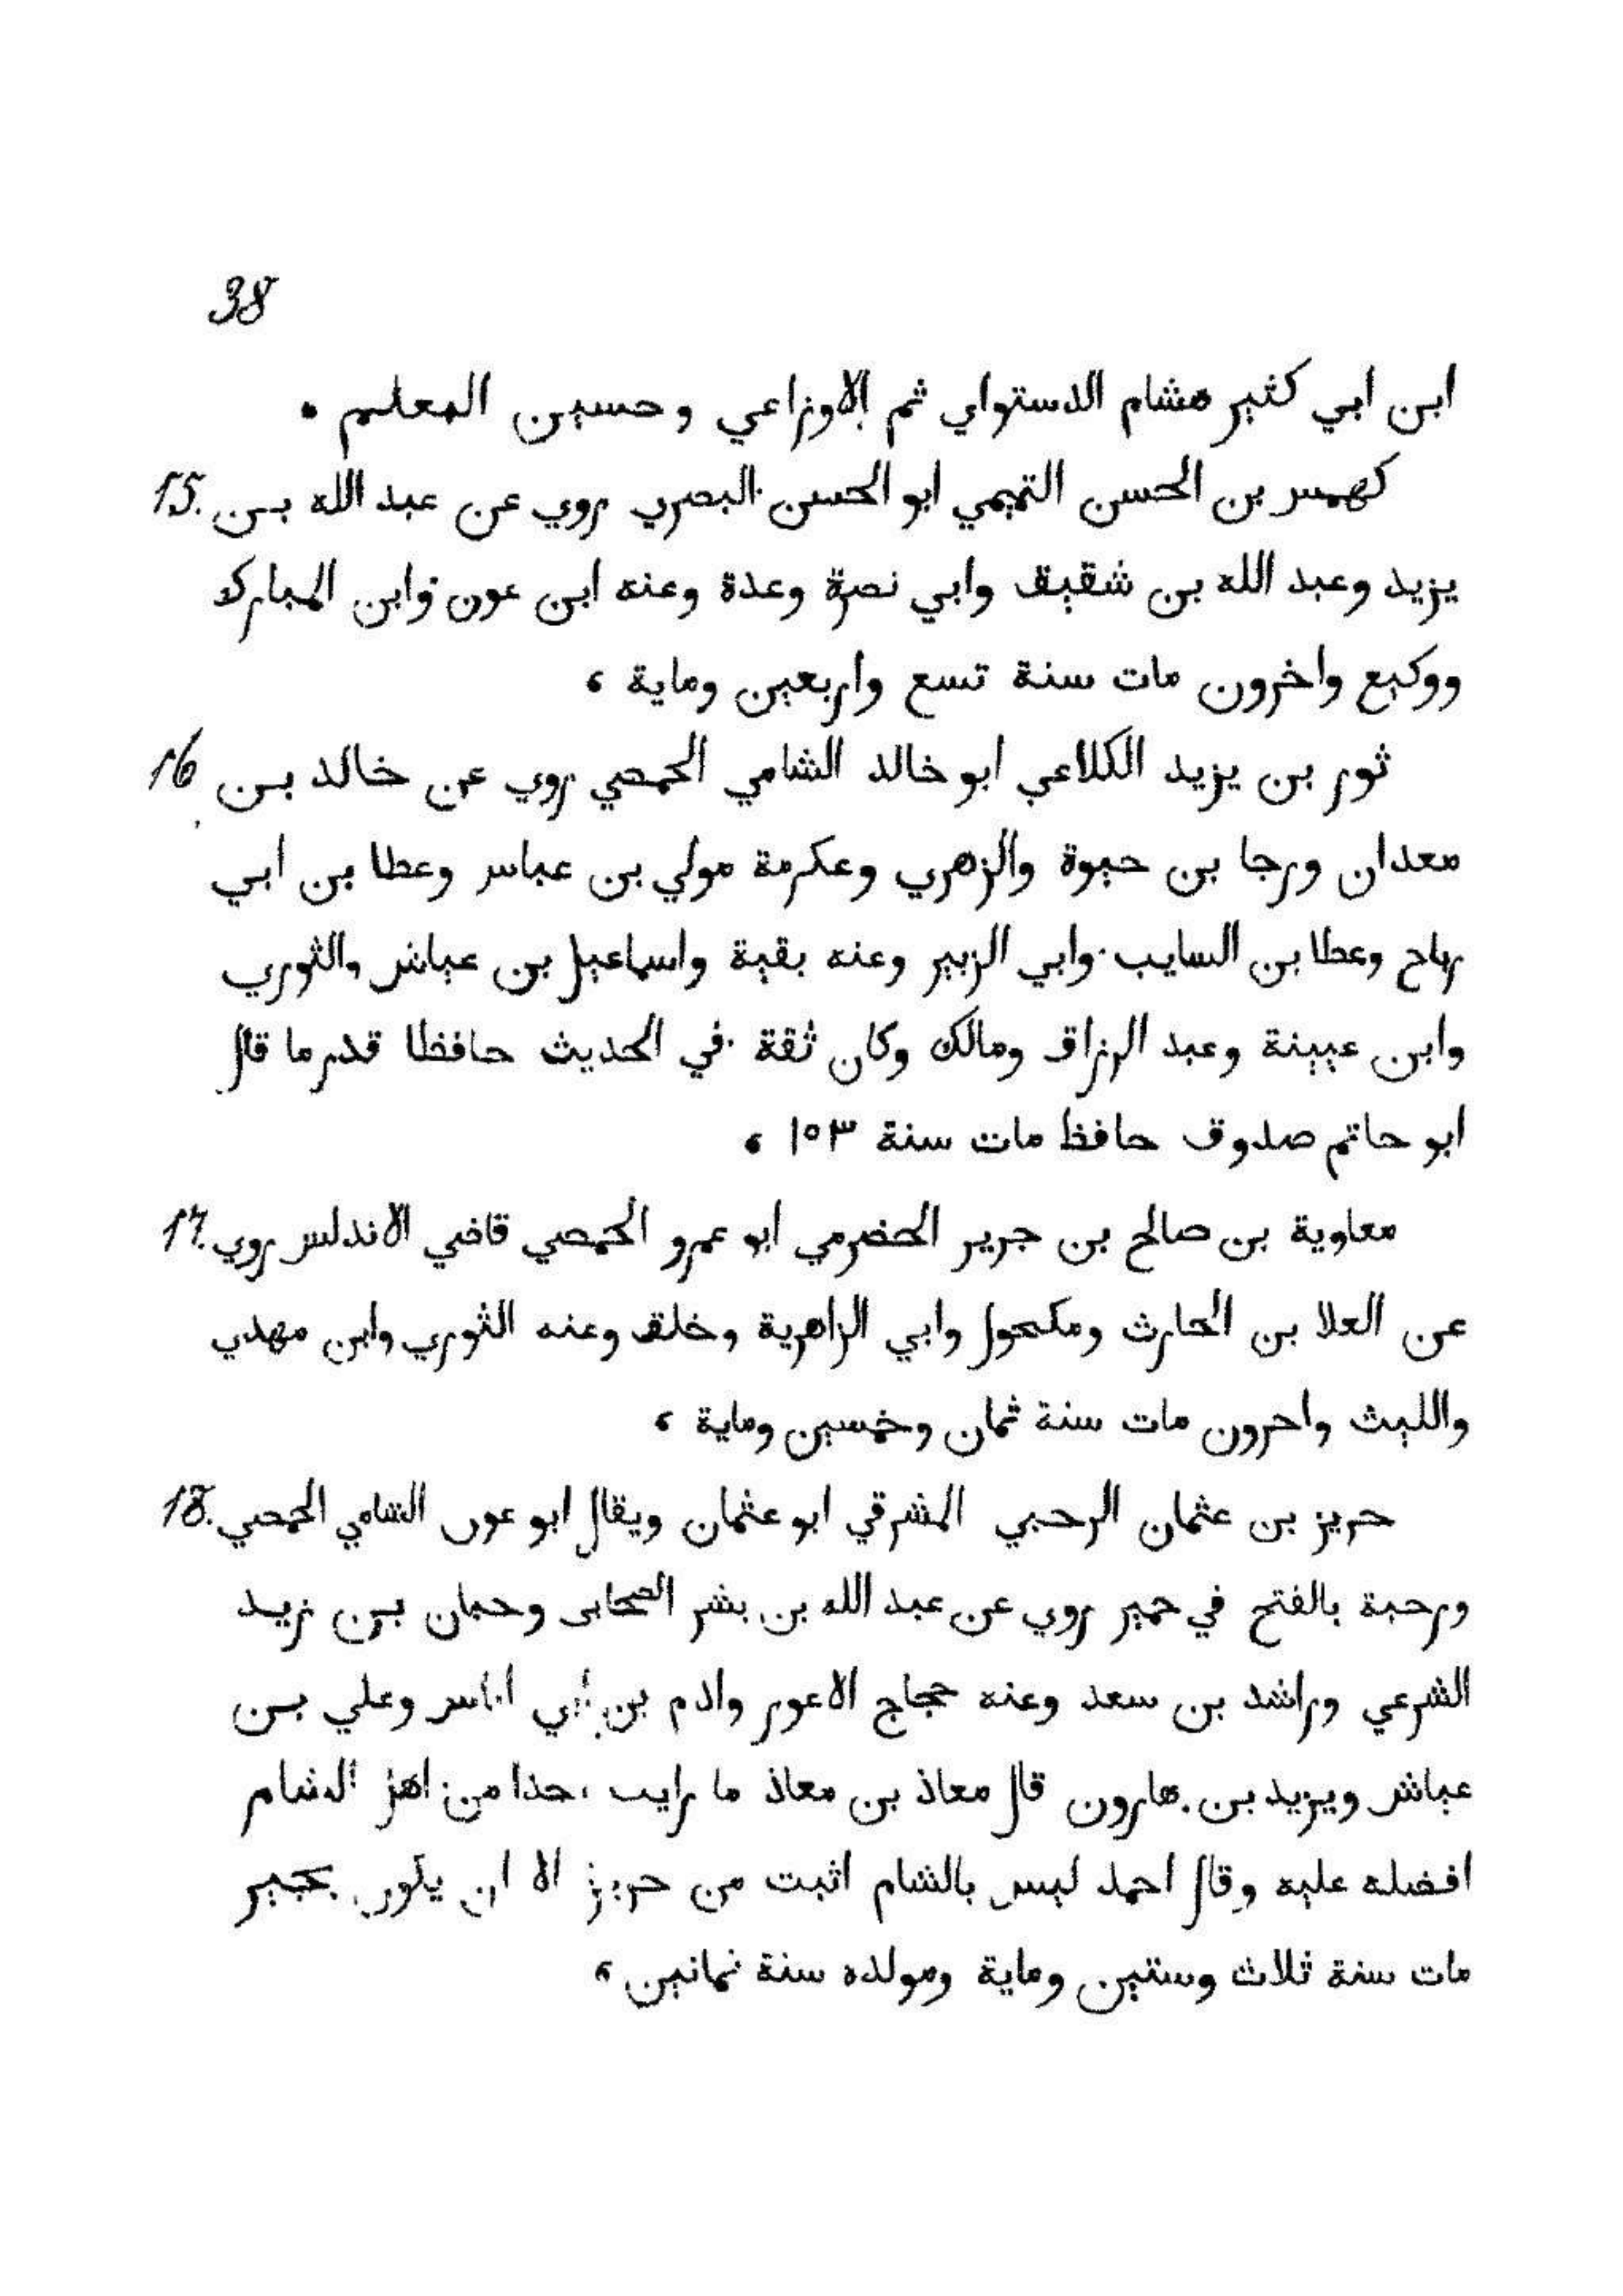 38
ابن ابي كثير هشام الدستواي ثم الاوزاعي وحسين المعلم .
كهمس بن الحسن التميمي ابو الحسن البصري روي عن عبد الله بن 15.
يزيد وعبد الله بن شقيق وابي نصرة وعدة وعنه ابن عون وابن المبارك
ووكيع واخرون مات سنة تسع واربعين وماية ،
ثور بن يزيد الكلاعي ابو خالد الشامي الحمصي روي عن خالد بن 16
معدان ورجا بن حيوة والزهري وعكرمة مولي بن عباس وعطا بن ابي
رباح وعطا بن السايب وابي الزبير وعنه بقية واسماعيل بن عياش والثوري
وابن عيينة وعبد الرزاق ومالك وكان ثقة في الحديث حافظا قدر ما قال
ابو حاتم صدوق حافظ مات سنة ١٥٣ ،
معاوية بن صالح بن جرير الحضرمي ابو عمرو الحمصي قاضي الاندلس روي 17.
عن العلا بن الحارث ومكحول وابي الزاهرية وخلق وعنه الثوري وابن مهدي
والليث واحرون مات سنة ثمان وخمسين وماية ،
حريز بن عثمان الرحبي المشرقي ابو عثمان ويقال ابو عون الشامي الحمصي 18.
ورحبة بالفتح في حمير روي عن عبد الله بن بشر الصحابى وحبان بن زيد
الشرعي وراشد بن سعد وعنه حجاج الاعور وادم بن ابي اياس وعلي بن
عياش ويزيد بن هارون قال معاذ بن معاذ ما رايت احدا من اهل الشام
افضله عليه وقال احمد ليس بالشام اثبت من حريز الا ان يكون بحير
مات سنة ثلاث وستين وماية ومولده سنة ثمانين ،